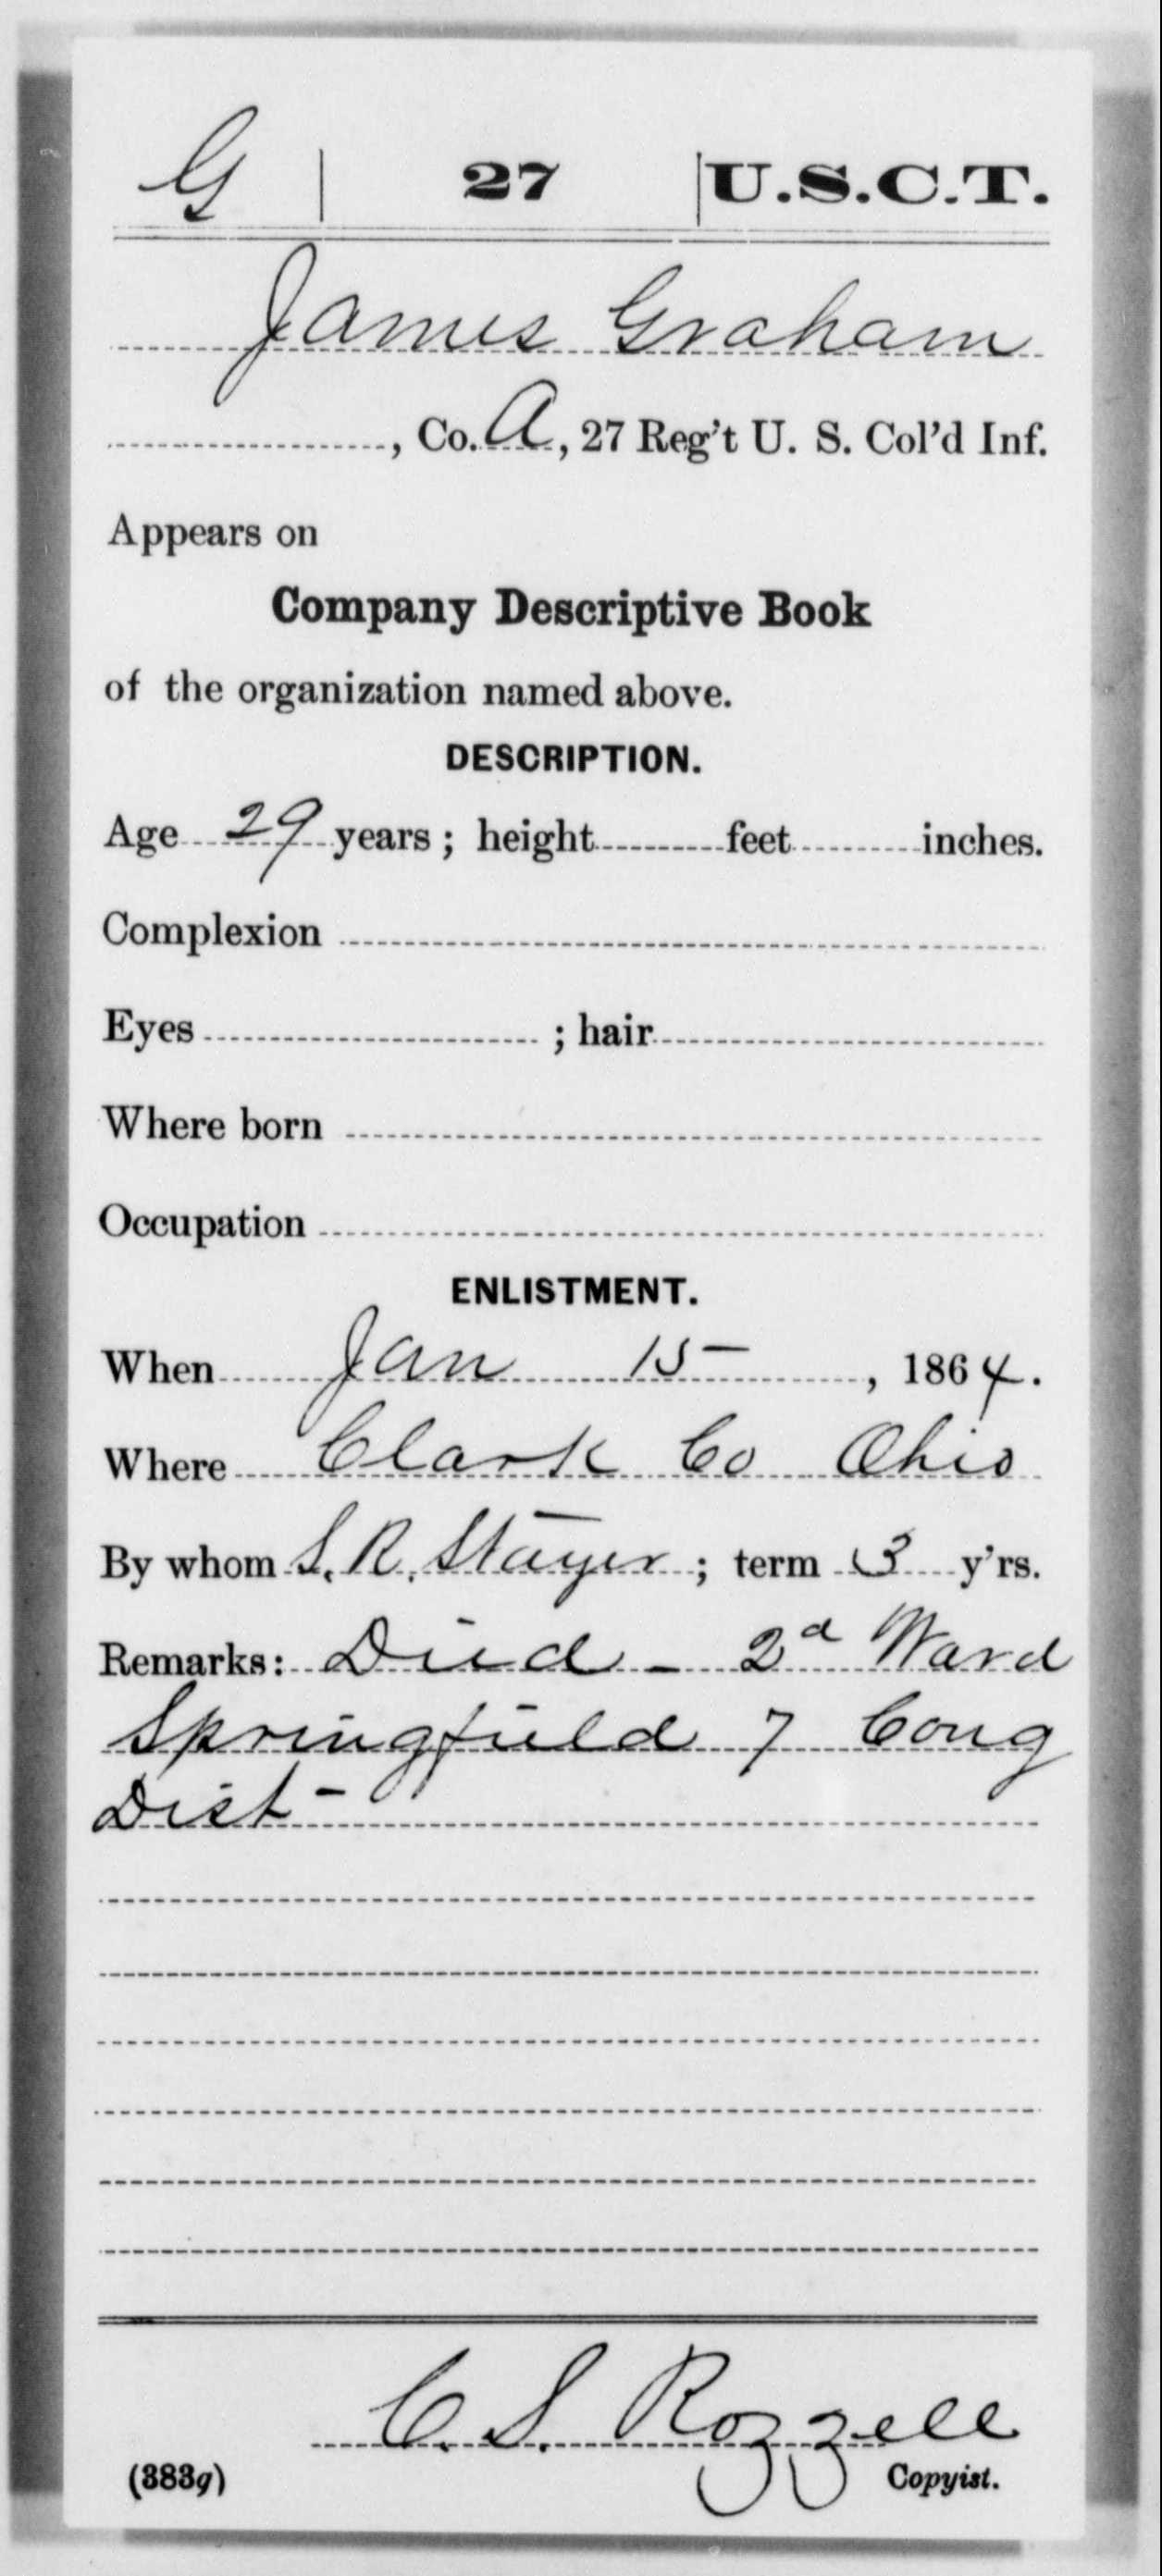 G | 27 | U.S.C.T.
James Graham
, Co. A, 27 Reg't U. S. Col'd Inf.
Appears on
Company Descriptive Book
of the organization named above.
DESCRIPTION.
Age 29 years; height feet inches.
Complexion
Eyes ; hair
Where born
Occupation
ENLISTMENT.
When Jan 15 , 1864.
Where Clark Co Ohio
By whom S. R. Stayer ; term 3 y'rs.
Remarks: Died - 2d Ward
Springfield 7 Cong
Dist -
C. S. Rozzell
(383g) Copyist.